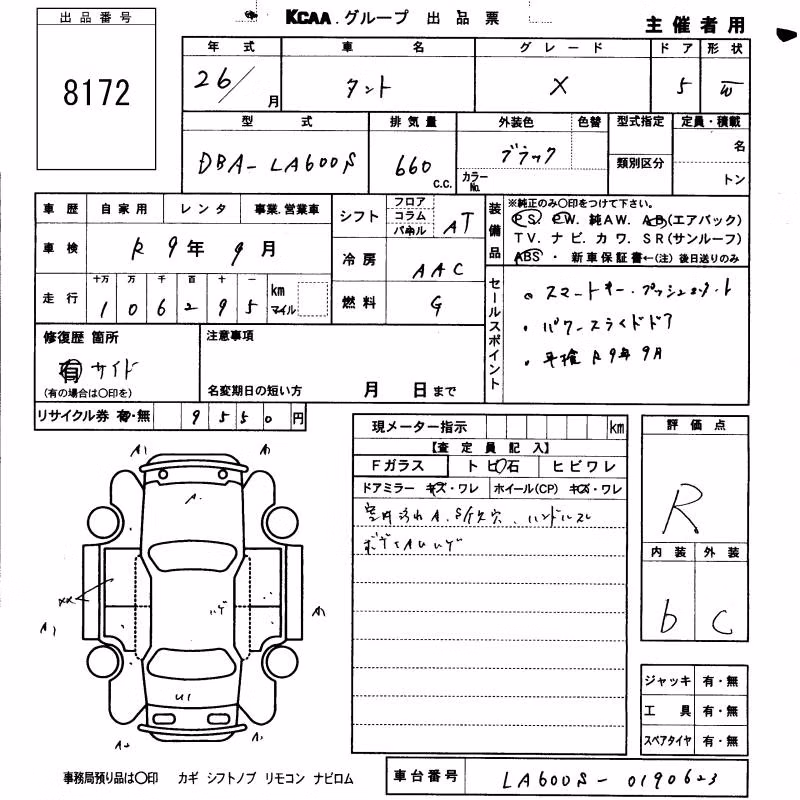 出品番号
8172
KCAA グループ 出品票
主催者用
年式 車名 グレード ドア 形状
26/月 タント X 5 W
型式 排気量 外装色 色替 型式指定 定員・積載
DBA-LA600S 660 c.c. ブラック カラーNo. 類別区分 名 トン
車歴 自家用 レンタ 事業.営業車
シフト フロア コラム パネル AT
装備品 ※純正のみ○印をつけて下さい。
PS. PW. 純AW. AB(エアバック)
TV. ナビ. カワ. SR(サンルーフ)
ABS ・ 新車保証書←(注) 後日送りのみ
車検 R 9年 9月
冷房 AAC
走行 十万 万 千 百 十 一 km マイル
1 0 6 2 9 5
燃料 G
セールスポイント
・スマートキー・プッシュスタート
・パワースライドドア
・車検R9年9月
修復歴 箇所
有 サイド
(有の場合は○印を)
注意事項
名変期日の短い方 月 日まで
リサイクル券 有・無 9550円
現メーター指示 km
【査定員記入】
Fガラス トビ石 ヒビワレ
ドアミラー キズ・ワレ ホイール(CP) キズ・ワレ
室内汚れA、S/Kス穴、ハンドルスレ
ボディAUハゲ
評価点
R
内装 外装
b C
A1 A1
A
XX
ハゲ
A1 A1
U1
A2 A1
ジャッキ 有・無
工具 有・無
スペアタイヤ 有・無
事務局預り品は○印 カギ シフトノブ リモコン ナビロム
車台番号 LA600S-0190623